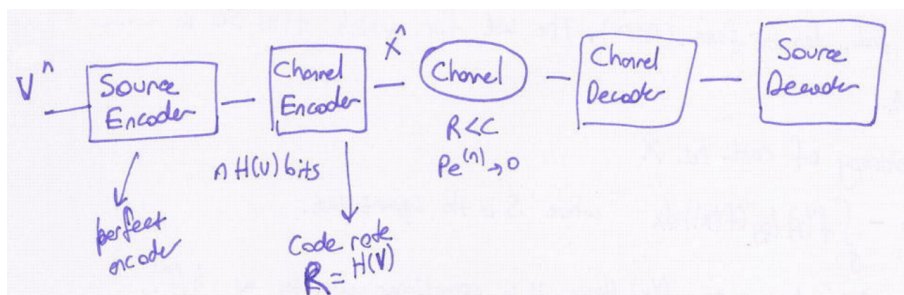 V^n
Source
Encoder
Channel
Encoder
X^n
Channel
Channel
Decoder
Source
Decoder
n H(V) bits
R<C
Pe^(n)→0
perfect
encoder
Code rate
R = H(V)